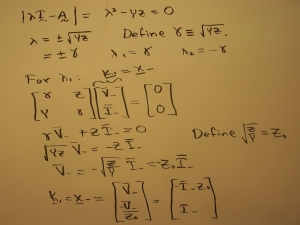 |λI - A| = λ² - YZ = 0
λ = ±√YZ Define γ ≡ √YZ.
= ±γ λ₁ = γ λ₂ = -γ
For λ₁: k₁ = x₋
[γ Z; Y γ] [V₋; I₋] = [0; 0]
γV₋ + ZI₋ = 0
√YZ V₋ = -ZI₋ Define √(Z/Y) = Z₀
V₋ = -√(Z/Y) I₋ = -Z₀ I₋
k₁ = x₋ = [V₋; -V₋/Z₀] = [-I₋Z₀; I₋]